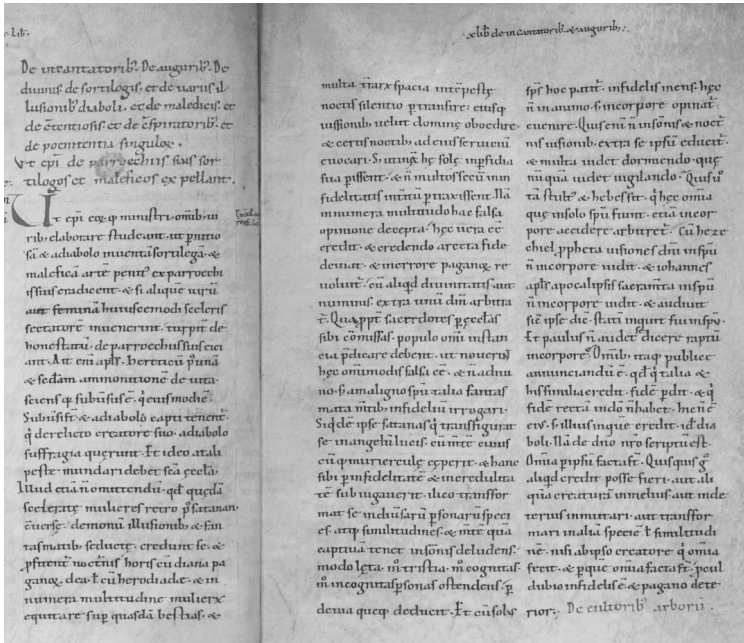 x lib̄ de incantatorib; & augurib;.
De incantatorib;. De augurib;. De
diuinis. de sortilogis. et de uariis il
lusionib; diaboli. et de maledicis. et
de c̄tentiosis. et de c̄spiratorib;. et
de poenitentia singulorꝝ.
Vt ep̄i. de parroechiis suis sor
tilogos et maleficos expellant.
Ut ep̄i eorꝝq; ministri. omib; ui
rib; elaborare studeant. ut p̄nitio
sā & a diabolo inuentā sortilegā &
maleficā artē penit; ex parroechi
is suis eradicent. & si aliquē uirū
aut feminā huiuscemodi sceleris
sectatorē inuenerint. turpit̄ de
honestatū. de parroechiis suis eici
ant. Ait eni apl's. Hereticū p; unā
& sedam ammonitionē deuita.
sciens q; subuersus ē. q' eiusmodi ē.
Subuersi st̄. & a diabolo capti tenent̄.
q' derelicto creatore suo. a diabolo
suffragia querunt. Et ideo a tali
peste. mundari debet sc̄a ęccl'a.
Illud etiā n̄ omittendū. qđ quędā
sceleratę mulieres retro p; satanan
c̄uersę. demonū illusionib; & fan
tasmatib; seductę. credunt se. &
p̄fitent̄ nocturnis horis cū diana pa
ganorꝝ dea. ł cū herodiade. & in
numera multitudine mulierꝝ
equitare sup̄ quasdā bestias. &
multa t̄rarꝝ spacia intēpestę
noctis silentio p̄transire. eiusq;
iussionib; uelut dominę oboedire.
& certis noctib; ad eius seruiciū
euocari. S; utinā hę solę in p̄fidia
sua p̄issent. & n̄ multos secū in in
fidelitatis int̄itū p̄traxissent. Nā
innumera multitudo hac falsa
opinione decepta. hęc uera eē
credit. & credendo a recta fide
deuiat. & in errore paganorꝝ re
uoluit̄. cū aliqd̄ diuinitatis aut
numinis. extra unū dm̄ arbitra
t̄. Qua ppt̄ sacerdotes p̄ ęccl'as
sibi c̄missas. populo omi instan
cia p̄dicare debent. ut nouerint
hęc omimodis falsa eē. & n̄ a diui
no. s; a maligno spū talia fantas
mata m̄tib; infideliū irrogari.
Siqđē ipse satanas q' transfigurat
se in angelū lucis. cū m̄tē cuius
cūq; mulierculę cęperit. & hanc
sibi p̄ infidelitatē & incredulita
tē subiugauerit. ilico transfor
mat se in diuersarū p̄sonarū speci
es. atq; similitudines. & m̄tē quā
captiuā tenet in sōnis deludens.
modo lęta. m̊ tristia. m̊ cognitas.
m̊ incognitas p̄sonas ostendens. p̄
deuia queq; deducit. Et cū solus
sp̄s hoc patit̄. infidelis mens. hęc
n̄ in animo. s; in corpore opinat̄
euenire. Quis eni n̄ in sōnis & noct̄
nis uisionib; extra se ipsū educit̄.
& multa uidet dormiendo. quę
nūquā uidet uigilando? Quis u̇o
tā stult; & hebes sit. q' hęc omia
quę in solo spū fiunt. etiā in cor
pore accidere arbitret̄. Cū heze
chiel p̄pheta uisiones dn̄i in spū
n̄ in corpore uidit. & iohannes
apl's apocalipsis sacramta in spū
n̄ in corpore uidit. & audiuit
sic̄ ipse dic̄. statī inquit fui in spū.
Et paulus n̄ audet se dicere raptū
in corpore? Omib; itaq; publice
annunciandū ē. qđ q' talia &
his similia credit. fidē p̄dit. & q'
fidē rectā in do n̄ habet. hic n̄ ē
ei;. s; illius in quē credit. id ē dia
boli. Nā de dn̄o nr̄o scriptū est.
Omia p̄ ipsū facta st̄. Quisquis g°
aliqđ credit posse fieri. aut ali
quā creaturā in melius aut in de
terius inmutari. aut transfor
mari in aliā speciē ł similitudi
nē. nisi ab ipso creatore q' omia
fecit. & p̄ quē omia facta st̄. p̄cul
dubio infidelis ē. & pagano dete
rior. De cultorib; arborū.